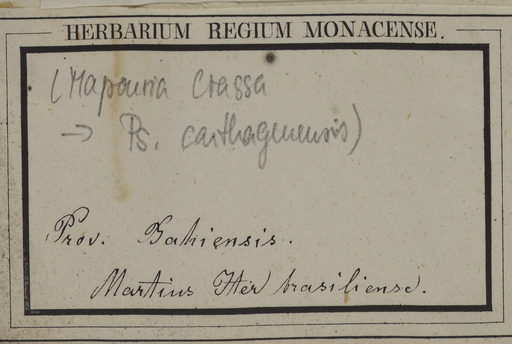 HERBARIUM REGIUM MONACENSE.
(Mapouria crassa
→ Ps. carthagenensis)
Prov. Bahiensis.
Martius Iter brasiliense.